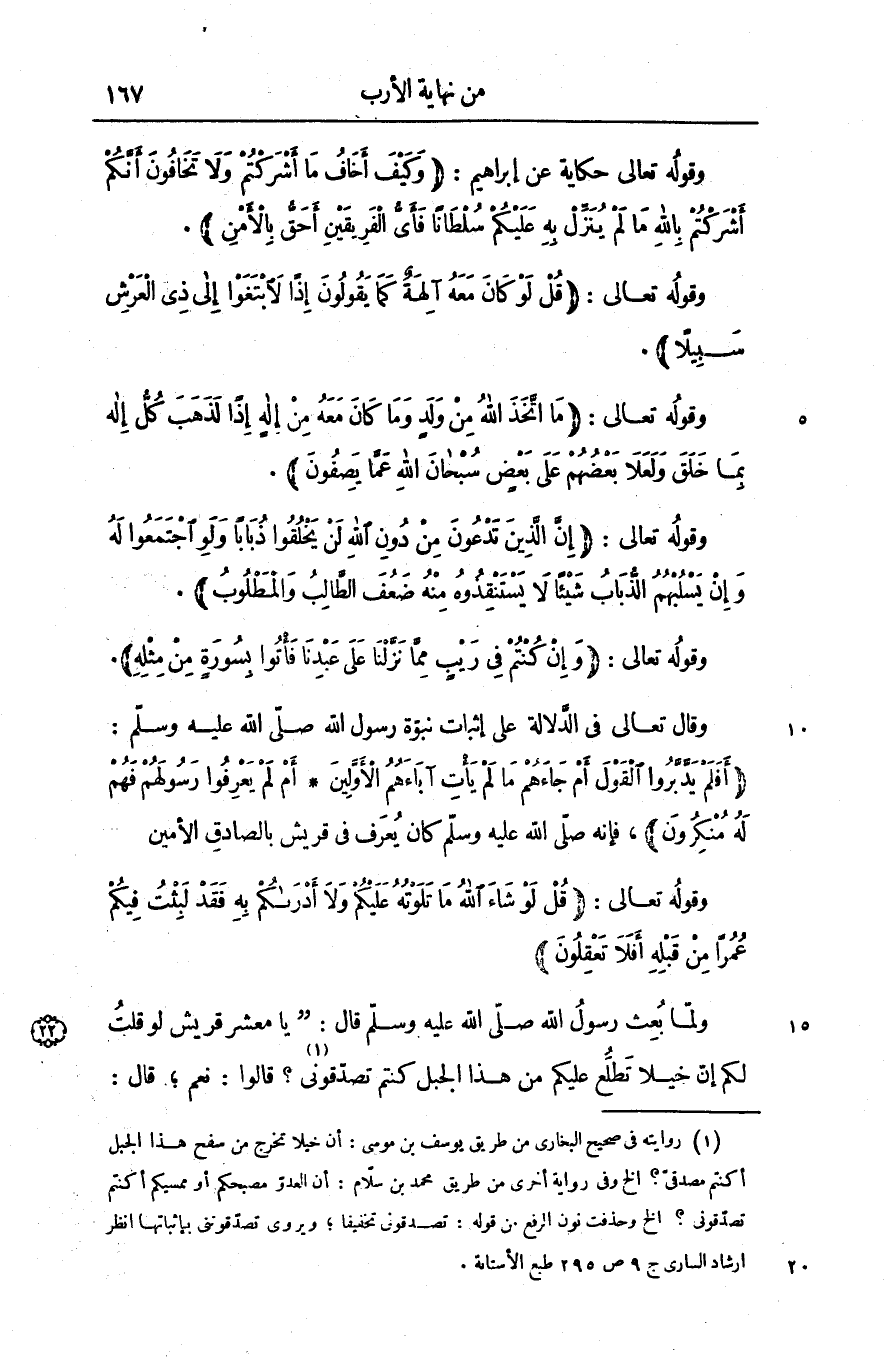 من نهاية الأرب ١٦٧
وقولُه تعالى حكاية عن إبراهيم : ﴿ وَكَيْفَ أَخَافُ مَا أَشْرَكْتُمْ وَلَا تَخَافُونَ أَنَّكُمْ
أَشْرَكْتُمْ بِاللهِ مَا لَمْ يُنَزِّلْ بِهِ عَلَيْكُمْ سُلْطَانًا فَأَىُّ الْفَرِيقَيْنِ أَحَقُّ بِالْأَمْنِ ﴾ .
وقولُه تعـالى : ﴿ قُلْ لَوْ كَانَ مَعَهُ آلِهَةٌ كَمَا يَقُولُونَ إِذًا لَابْتَغَوْا إِلَى ذِى الْعَرْشِ
سَـــبِيلًا ﴾ .
وقولُه تعـالى : ﴿ مَا اتَّخَذَ اللهُ مِنْ وَلَدٍ وَمَا كَانَ مَعَهُ مِنْ إِلٰهٍ إِذًا لَذَهَبَ كُلُّ إِلٰه ٥
بِمَـا خَلَقَ وَلَعَلَا بَعْضُهُمْ عَلَى بَعْضٍ سُبْحَانَ اللهِ عَمَّا يَصِفُونَ ﴾ .
وقولُه تعالى : ﴿ إِنَّ الَّذِينَ تَدْعُونَ مِنْ دُونِ ٱللهِ لَنْ يَخْلُقُوا ذُبَابًا وَلَوِ ٱجْتَمَعُوا لَهُ
وَ إِنْ يَسْلُبْهُمُ الذُّبَابُ شَيْئًا لَا يَسْتَنْقِذُوهُ مِنْهُ ضَعُفَ الطَّالِبُ وَالْمَطْلُوبُ ﴾ .
وقولُه تعالى : ﴿ وَ إِنْ كُنْتُمْ فِى رَيْبٍ مِمَّا نَزَّلْنَا عَلَى عَبْدِنَا فَأْتُوا بِسُورَةٍ مِنْ مِثْلِهِ ﴾.
وقال تعـالى فى الدَّلالة على إثبات نبوّة رسول الله صـلّى الله عليـه وسـلّم : ١٠
﴿ أَفَلَمْ يَدَّبَّرُوا ٱلْقَوْلَ أَمْ جَاءَهُمْ مَا لَمْ يَأْتِ آبَاءَهُمُ الْأَوَّلِينَ * أَمْ لَمْ يَعْرِفُوا رَسُولَهُمْ فَهُمْ
لَهُ مُنْكِرُونَ ﴾ ، فإنه صلّى الله عليه وسلّم كان يُعرَف فى قريش بالصادقِ الأمين
وقولُه تعـالى : ﴿ قُلْ لَوْ شَاءَ ٱللهُ مَا تَلَوْتُهُ عَلَيْكُمْ وَلَا أَدْرَىٰكُمْ بِهِ فَقَدْ لَبِثْتُ فِيكُمْ
عُمُرًا مِنْ قَبْلِهِ أَفَلَا تَعْقِلُونَ ﴾
ولمّـا بُعِث رسولُ الله صـلّى الله عليه وسـلّم قال : ” يا معشر قريش لو قلتُ ١٥ ٢٢
لكم إنّ خيـلا تَطلُّع عليكم من هـذا الجبل كنتم تصدّقونى (١) ؟ قالوا : نعم ؛ قال :
(١) روايته فى صحيح البخارى من طريق يوسف بن موسى : أن خيلا تخرج من سفح هـذا الجبل
أكنتم مصدقىّ ؟ الخ وفى رواية أخرى من طريق محمد بن سلّام : أن العدوّ مصبحكم أو ممسيكم أكنتم
تصدّقونى ؟ الخ وحذفت نون الرفع من قوله : تصـدقونى تخفيفا ؛ ويروى تصدّقوننى بإثباتهـا انظر
ارشاد السارى ج ٩ ص ٢٩٥ طبع الأستانة . ٢٠